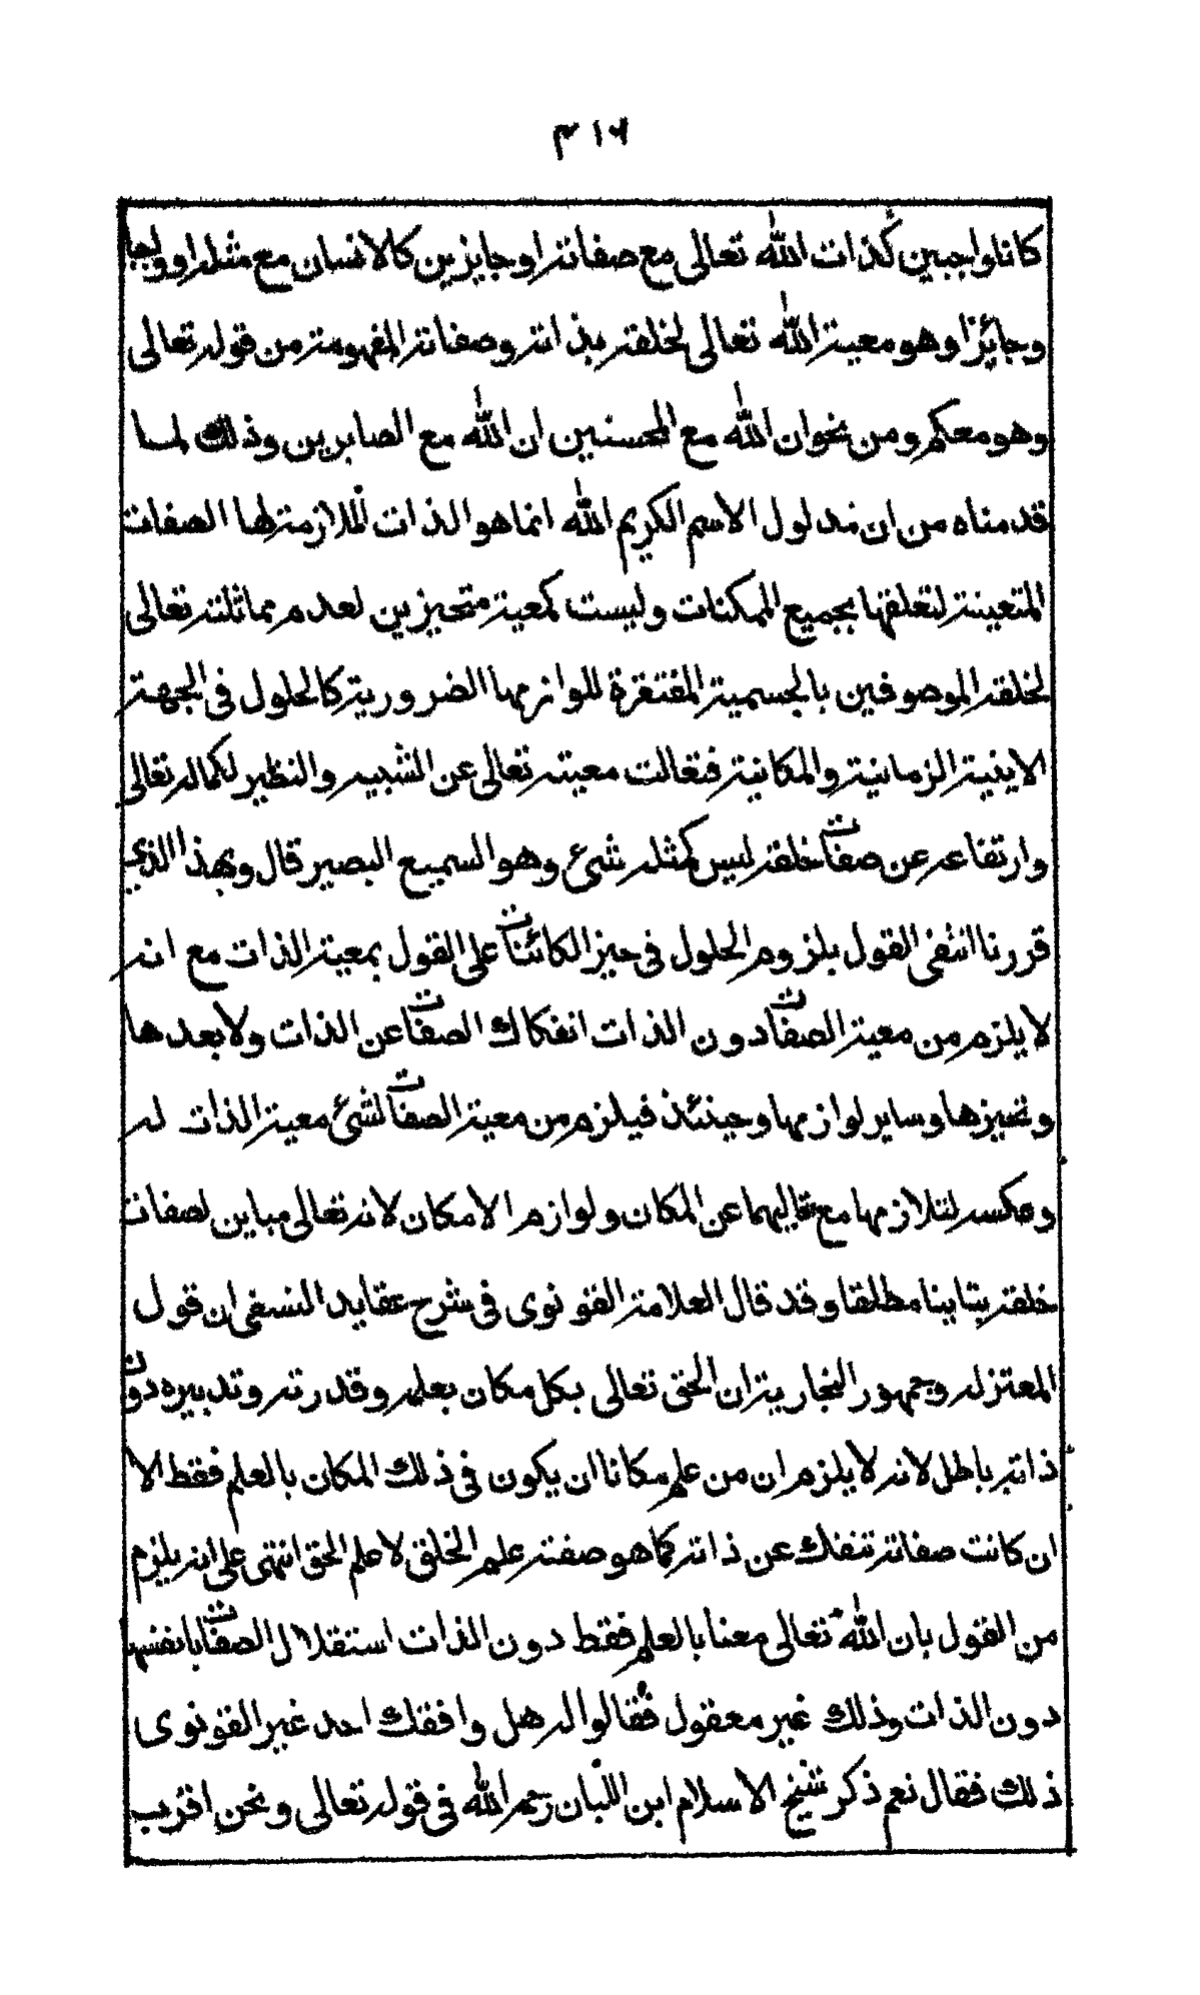 ٣١٦
كانا واجبين كذات الله تعالى مع صفاته او جايزين كالانسان مع مثله او واجبا
وجائزا وهو معية الله تعالى لخلقه بذاته وصفاته المفهومة من قوله تعالى
وهو معكم ومن نحو ان الله مع المحسنين ان الله مع الصابرين وذلك لما
قدمناه من ان مدلول الاسم الكريم الله انما هو الذات اللازمة لها الصفات
المتعينة لتعلقها بجميع الممكنات وليست كمعية متحيزين لعدم مماثلته تعالى
لخلقه الموصوفين بالجسمية المفتقرة للوازمها الضرورية كالحلول في الجهة
الاينية الزمانية والمكانية فتعالت معيته تعالى عن الشبيه والنظير لكماله تعالى
وارتفاعه عن صفات خلقه ليس كمثله شئ وهو السميع البصير قال وبهذا الذي
قررنا انتفى القول بلزوم الحلول في حيز الكائنات على القول بمعية الذات مع انه
لا يلزم من معية الصفات دون الذات انفكاك الصفات عن الذات ولا بعدها
وتحيزها وساير لوازمها وحينئذ فيلزم من معية الصفات لشئ معية الذات له
وعكسه لتلازمهما مع تعاليهما عن المكان ولوازم الامكان لانه تعالى مباين لصفات
خلقه تباينا مطلقا وقد قال العلامة القونوى في شرح عقايد النسفي ان قول
المعتزله وجمهور النجارية ان الحق تعالى بكل مكان بعلمه وقدرته وتدبيره دون
ذاته باطل لانه لا يلزم ان من علم مكانا ان يكون في ذلك المكان بالعلم فقط الا
ان كانت صفاته تنفك عن ذاته كما هو صفة علم الخلق لا علم الحق انتهى على انه يلزم
من القول بان الله تعالى معنا بالعلم فقط دون الذات استقلال الصفات بانفسها
دون الذات وذلك غير معقول فقالوا له هل وافقك احد غير القونوى
ذلك فقال نعم ذكر شيخ الاسلام ابن اللبان رحمه الله في قوله تعالى ونحن اقرب